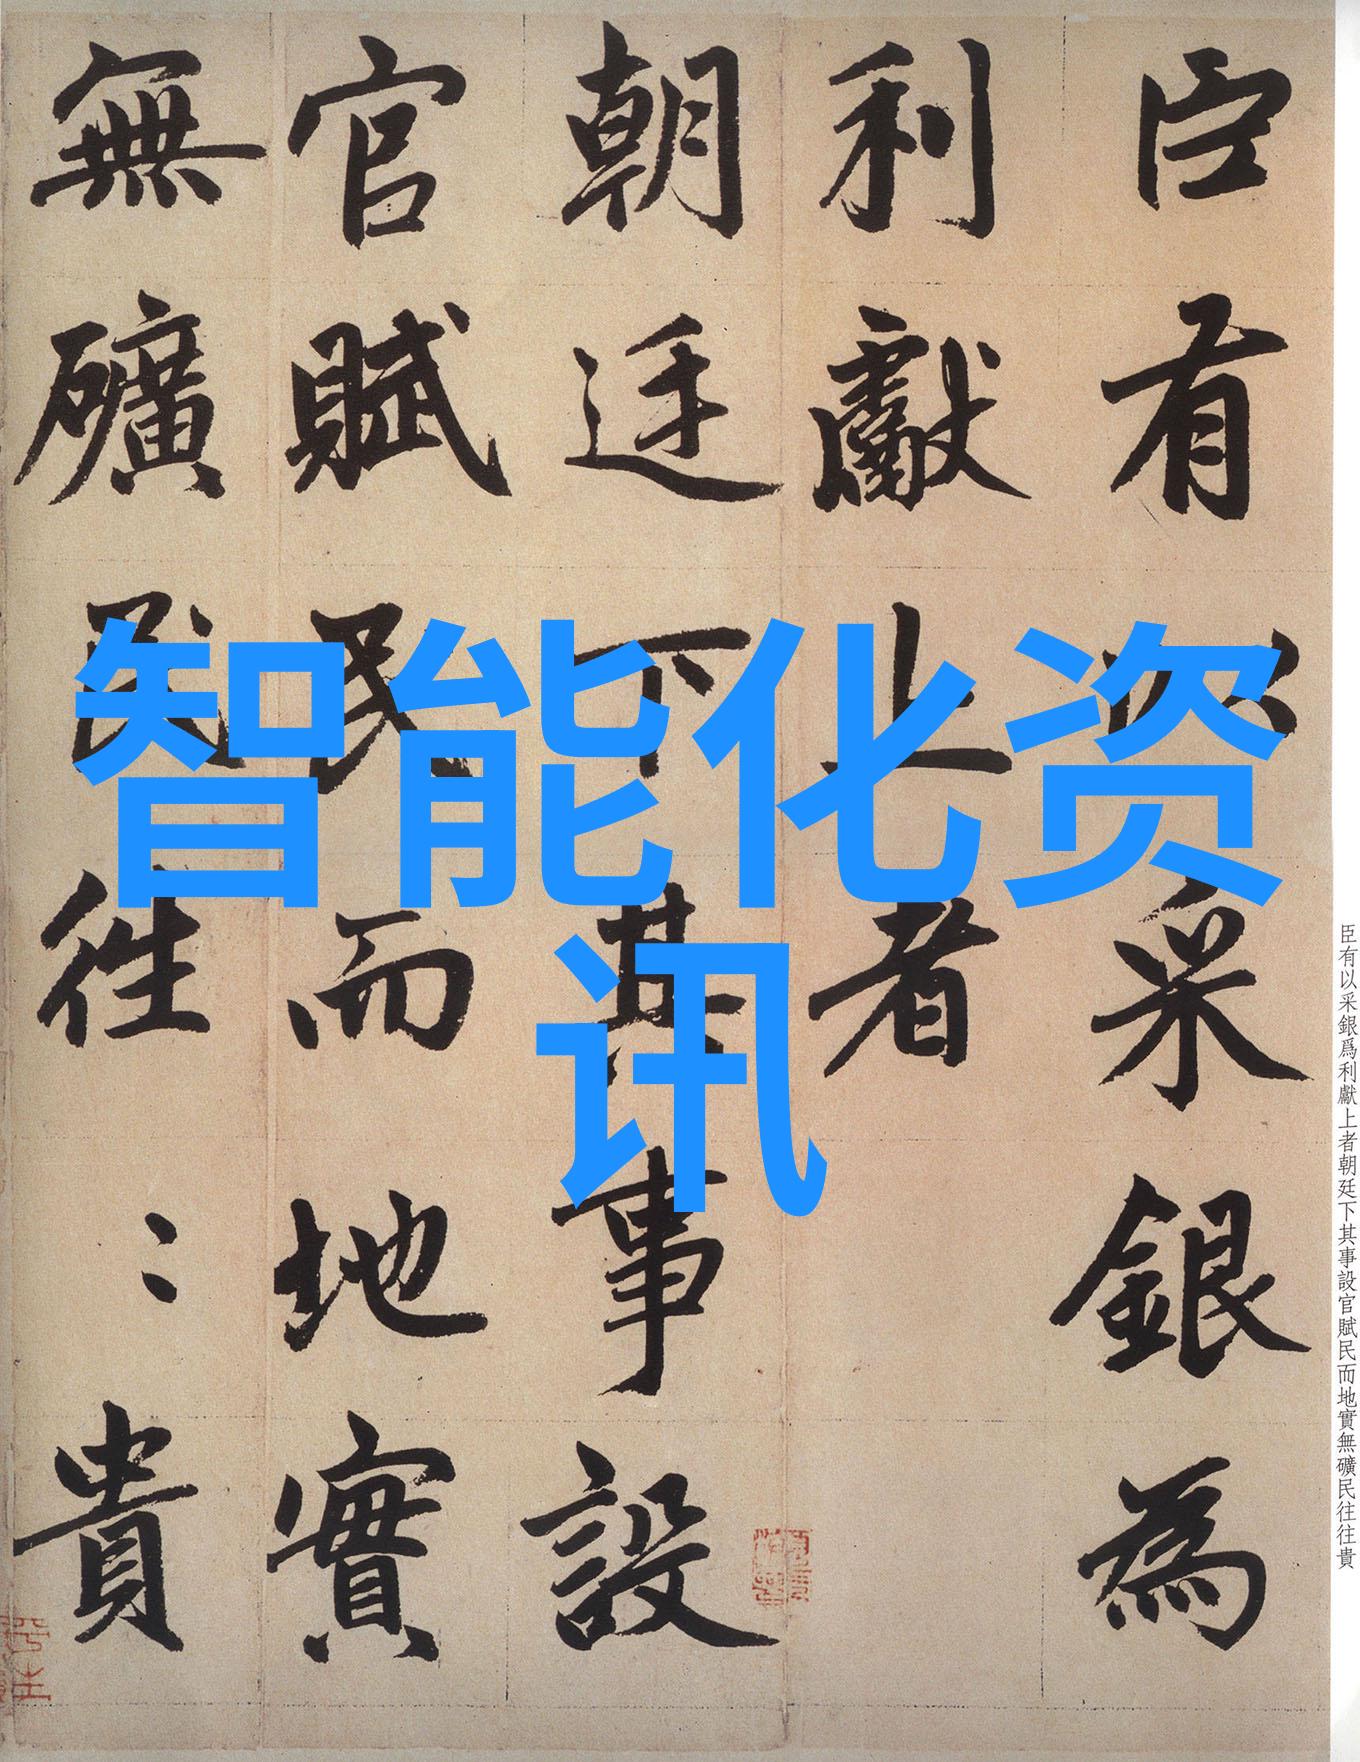 臣有以采銀為
利獻上者
朝廷下其事設
官賦民而地實
無礦民往〻貴
智能化资
讯
臣有以采銀爲利獻上者朝廷下其事設官賦民而地實無礦民往往貴